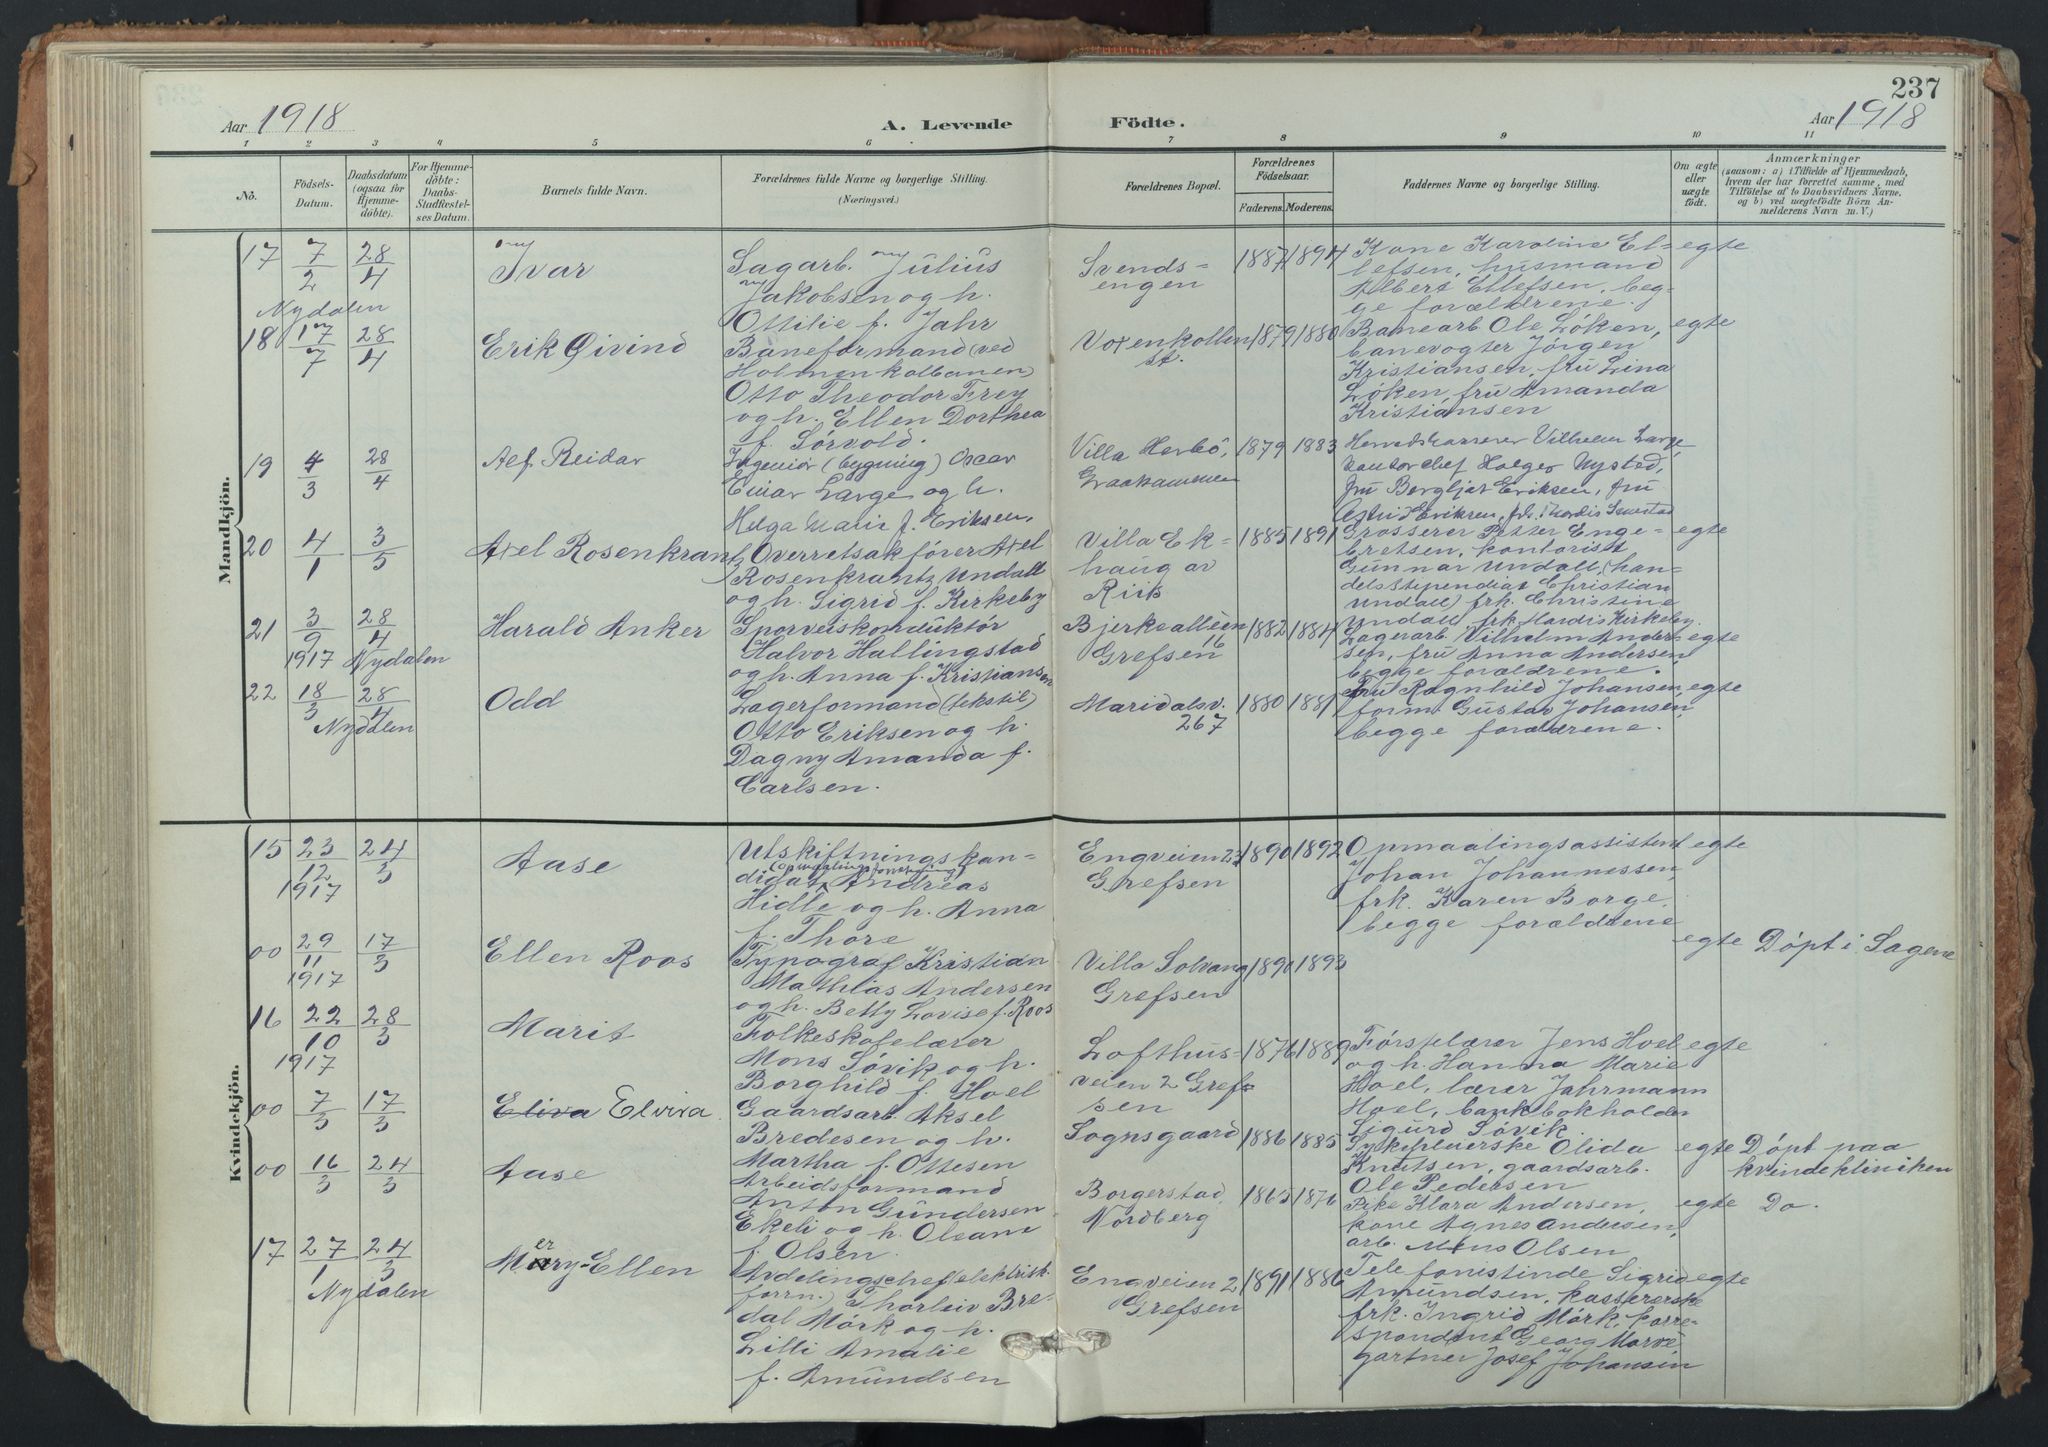 237
Aar 1918 A. Levende Födte. Aar 1918
1 2 3 4 5 6 7 8 9 10 11
No.
Födsels-Datum.
Daabsdatum (ogsaa for Hjemmedöbte).
For Hjemmedöbte: Daabs-Stadfæstelses Datum.
Barnets fulde Navn.
Forældrenes fulde Navne og borgerlige Stilling. (Næringsvei.)
Forældrenes Bopæl.
Forældrenes Födselsaar. Faderens. Moderens.
Faddernes Navne og borgerlige Stilling.
Om ægte eller uægte födt.
Anmærkninger
(saasom: a) i Tilfælde af Hjemmedaab, hvem der har forrettet samme, med Tilfölelse af to Daabsvidners Navne. og b) ved uægtefödte Börn Anmelderens Navn m. V.)
Mandkjön.
17 7/2 28/4 Nydalen
Ivar
Sagarb. Julius
Jakobsen og h.
Ottilie f. Jahr
Svends-
engen
1887 1894
Kone Karoline El-
lefsen, husmand
Albert Ellefsen, beg-
ge forældrene.
egte
18 17/7 28/4
Erik Øivind
Baneformand (ved
Holmenkolbanen)
Otto Theodor Frey
og h. Ellen Dorthea
f. Sörvold.
Voxenkollen
st.
1879 1880
Banearb Ole Løken,
banevogter Jörgen
Kristiansen, fru Lina
Løken, fru Amanda
Kristiansen
egte
19 4/3 28/4
Alf Reidar
Ingeniör (bygning) Oscar
Einar Lange og h.
Helga Marie f. Eriksen.
Villa Herbö,
Graakammen
1879 1883
Herredskasserer Vilhelm Lange,
kontorchef Holger Nysted,
fru Bergljot Eriksen, fru
Astrid Eriksen,
20 4/1 3/5
Axel Rosenkrantz
Overretsakfører Axel
Rosenkrantz Undall
og h. Sigrid f. Kirkeby
Villa Ek-
haug av
Riis
1885 1891
Grosserer Petter Enge-
bretsen, kontorist
Gunnar Undall, (han-
delsstipendiat Christian
Undall) frk. Christine
Undall frk. Hardis Kirkeby
egte
21 3/9 1917 28/4 Nydalen
Harald Anker
Sporveiskonduktör
Halvor Hallingstad
og h. Anna f. Kristiansen
Bjerkealleen
16
Grefsen
1882 1884
Lagerarb. Vilhelm Ander-
sen, fru Anna Andersen
begge forældrene.
egte
22 18/3 28/4 Nydalen
Odd
Lagerformand (tekstil)
Otto Eriksen og h.
Dagny Amanda f.
Carlsen.
Maridalsv.
267
1880 1881
Fru Ragnhild Johansen,
form. Gustav Johansen,
begge forældrene.
egte
Kvindekjön.
15 23/12 1917 24/3
Aase
Utskiftningskan-
didat (opmålingsforretning) Andreas
Hidle og h. Anna
f. Thore
Engveien 23
Grefsen
1890 1892
Opmaalingsassistent
Johan Johannessen,
frk. Karen Borge,
begge forældrene
egte
00 29/11 1917 17/3
Ellen Roos
Typograf Kristian
Mathias Andersen
og h. Betty Lovise f. Roos
Villa Solvang
Grefsen
1890 1893
egte
Döpt i Sagene
16 22/10 1917 28/3
Marit
Folkeskolelærer
Mons Søvik og h.
Borghild f. Hoel
Lofthus-
veien 2 Gref-
sen
1876 1889
Førstelærer Jens Hoel
og h. Hanna Marie
Hoel, lærer Jahrmann
Hoel, bankbokholder
Sigurd Søvik.
egte
00 7/3 17/3
Eliva Elvira
Gaardsarb Aksel
Bredesen og h.
Martha f. Ottesen
Sognsgaard
1886 1885
Sykepleierske Olida
Knutsen, gaardsarb.
Ole Pedersen
egte
Döpt paa
kvindekliniken
00 16/3 24/3
Aase
Arbeidsformand
Anton Gundersen
Ekeli og h. Oleane
f. Olsen.
Borgerstad
Nordberg
1865 1876
Pike Klara Andersen,
kone Agnes Andersen,
arb. Mons Olsen
egte
Do.
17 27/1 24/3 Nydalen
Mery-Ellen
Avdelingschef (elektrisk
forrn.) Thorleiv Bre-
dal Mørk og h.
Lilli Amalie
f. Amundsen
Engveien 2
Grefsen
1891 1886
Telefonistinde Sigrid
Amundsen, kassererske
frk. Ingrid Mörk, korre-
spondent Georg Morve
gartner Josef Johansen
egte